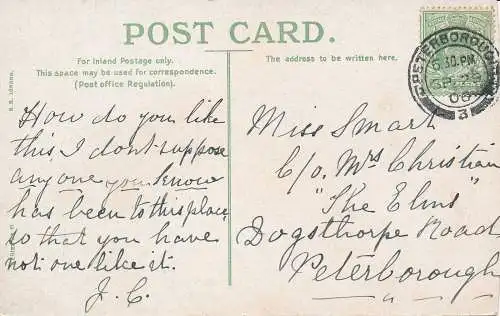 POST CARD.
For Inland Postage only.
This space may be used for correspondence.
(Post office Regulation).
The address to be written here.
How do you like
this, I dont suppose
anyone you know
has been to this place,
so that you have
not one like it.
J. C.
Miss Smart
C/o Mrs Christian
"The Elms"
Dogsthorpe Road
Peterborough
PETERBOROUGH
6.30 PM
SP 26
06
3